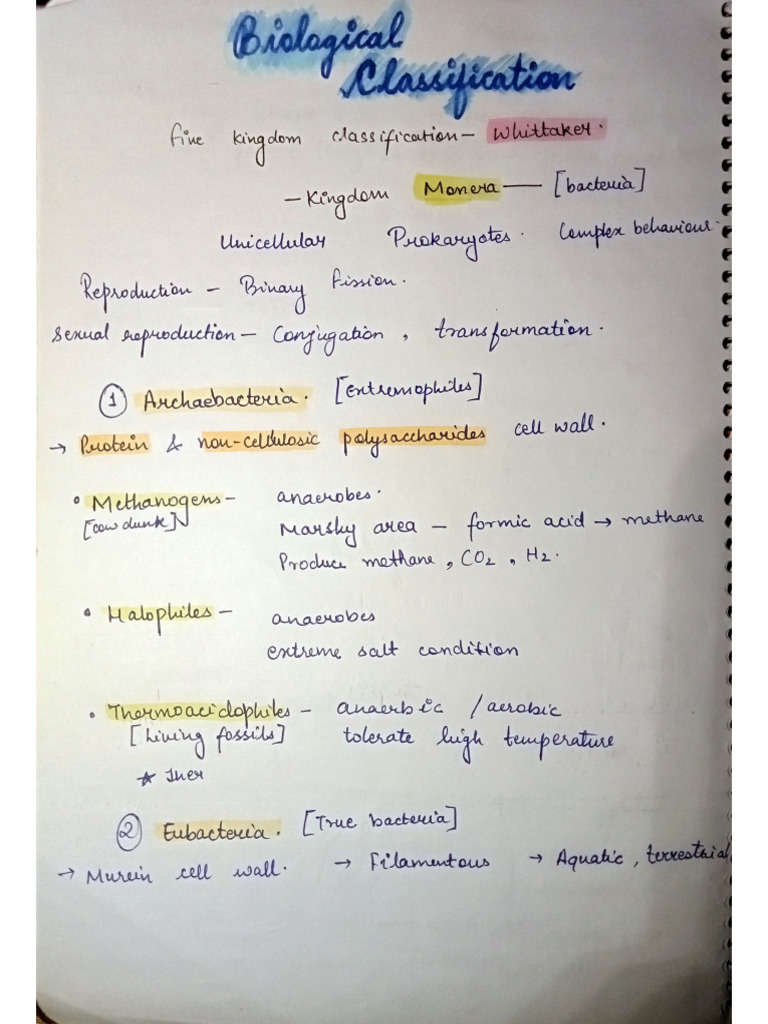 Biological
Classification
Five kingdom classification- Whittaker.
- Kingdom Monera — [bacteria]
Unicellular Prokaryotes. Complex behaviour.
Reproduction - Binary fission.
Sexual reproduction - Conjugation, transformation.
① Archaebacteria. [Extremophiles]
→ Protein & non-cellulosic polysaccharides cell wall.
• Methanogens - anaerobes.
[cow dunk] Marshy area - formic acid → methane
Produce methane, CO2, H2.
• Halophiles - anaerobes
extreme salt condition
• Thermoacidophiles - anaerbic / aerobic
[Living fossils] tolerate high temperature
☆ Ther
② Eubacteria. [True bacteria]
→ Murein cell wall. → Filamentous → Aquatic, terrestrial